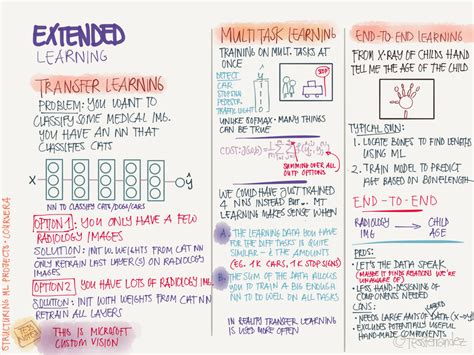 EXTENDED
LEARNING
TRANSFER LEARNING
PROBLEM: YOU WANT TO
CLASSIFY SOME MEDICAL IMG.
YOU HAVE AN NN THAT
CLASSIFIES CATS
X
ŷ
NN TO CLASSIFY CATS/DOGS/CARS
OPTION 1: YOU ONLY HAVE A FEW
RADIOLOGY IMAGES
SOLUTION: INIT W. WEIGHTS FROM CAT NN
ONLY RETRAIN LAST LAYER(S) ON RADIOLOGY
IMAGES
OPTION 2 YOU HAVE LOTS OF RADIOLOGY IMG.
SOLUTION: INIT WITH WEIGHTS FROM CAT NN
RETRAIN ALL LAYERS
THIS IS MICROSOFT
CUSTOM VISION
STRUCTURING ML PROJECTS · COURSERA
MULTI TASK LEARNING
TRAINING ON MULT. TASKS AT
ONCE
DETECT
CAR
STOP SIGN
PEDESTR
TRAFFIC LIGHT
STOP
UNLIKE SOFMAX · MANY THINGS
CAN BE TRUE
COST:
SUMMING OVER ALL
OUTP OPTIONS
WE COULD HAVE JUST TRAINED
4 NNS INSTEAD BUT... MT
LEARNING MAKES SENSE WHEN
A. THE LEARNING DATA YOU HAVE
FOR THE DIFF TASKS IS QUITE
SIMILAR – & THE AMOUNTS
(EG. 1K CARS, 1K STOP SIGNS)
B. THE SUM OF THE DATA ALLOWS
YOU TO TRAIN A BIG ENOUGH
NN TO DO WELL ON ALL TASKS
IN REALITY TRANSFER LEARNING
IS USED MORE OFTEN
END-TO END LEARNING
FROM X-RAY OF CHILDS HAND
TELL ME THE AGE OF THE CHILD
TYPICAL SOLN:
1. LOCATE BONES TO FIND LENGTHS
USING ML.
2. TRAIN MODEL TO PREDICT
AGE BASED ON BONELENGTH
END-TO-END
RADIOLOGY → CHILD
IMG AGE
PROS:
· LET'S THE DATA SPEAK
(MAYBE IT FINDS RELATIONS WE'RE
UNAWARE OF)
· LESS HAND-DESIGNING OF
COMPONENTS NEEDED
CONS:
· NEEDS LARGE AMTS OF DATA (X→Y)
· EXCLUDES POTENTIALLY USEFUL
HAND-MADE COMPONENTS